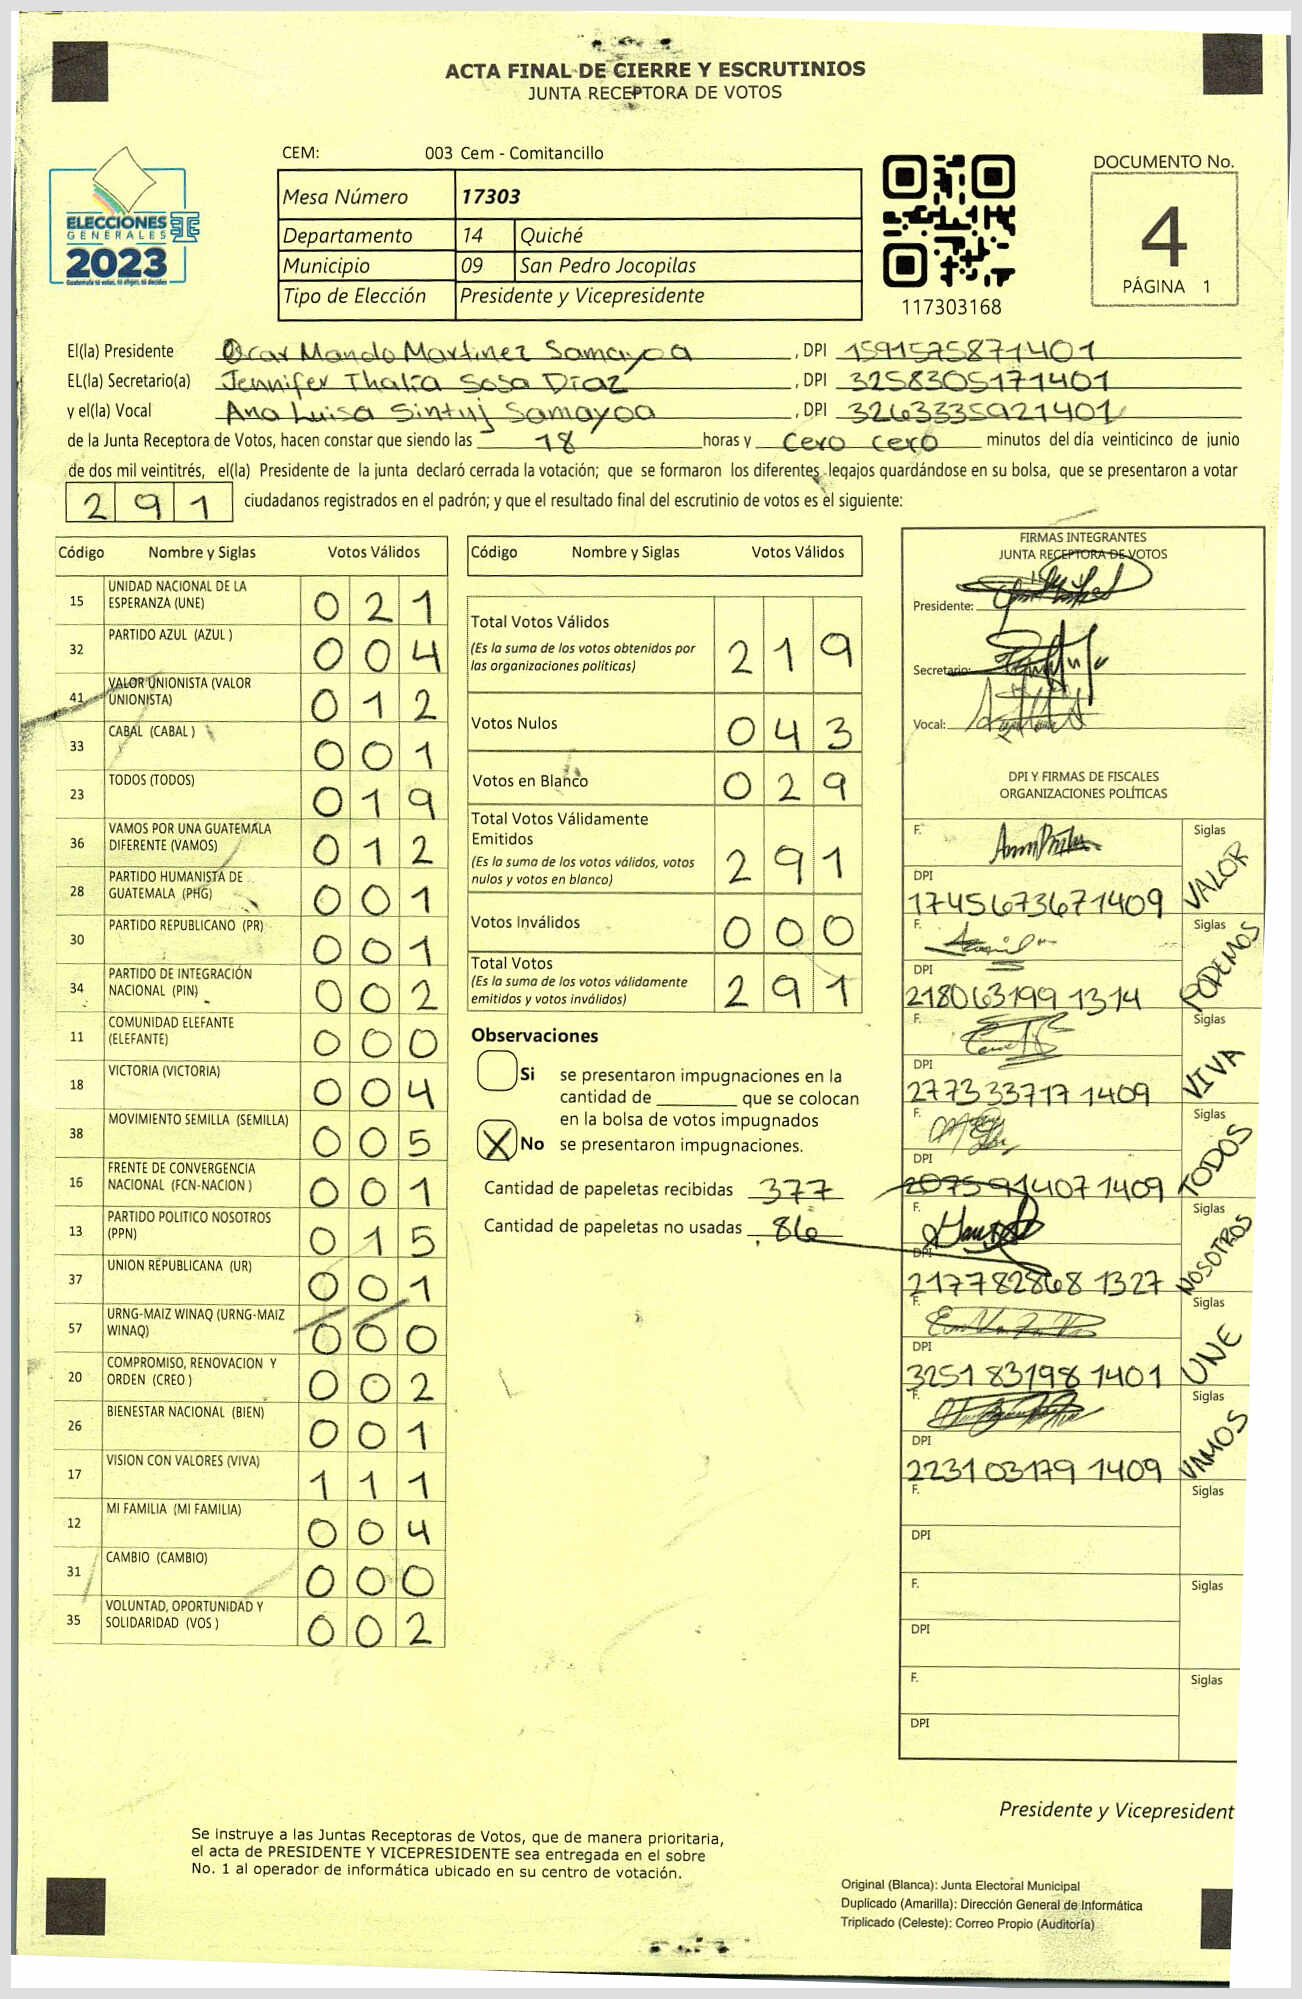 ACTA FINAL DE CIERRE Y ESCRUTINIOS
JUNTA RECEPTORA DE VOTOS
CEM: 003 Cem - Comitancillo
Mesa Número 17303
Departamento 14 Quiché
Municipio 09 San Pedro Jocopilas
Tipo de Elección Presidente y Vicepresidente
ELECCIONES
GENERALES
2023
117303168
DOCUMENTO No.
4
PÁGINA 1
El(la) Presidente Oscar Mando Martinez Samayoa , DPI 1591575871401
EL(la) Secretario(a) Jennifer Thalía Sosa Díaz , DPI 3258305171401
y el(la) Vocal Ana Luisa Sintuj Samayoa , DPI 3263335921401
de la Junta Receptora de Votos, hacen constar que siendo las 18 horas y cero cero minutos del día veinticinco de junio
de dos mil veintitrés, el(la) Presidente de la junta declaró cerrada la votación; que se formaron los diferentes legajos guardándose en su bolsa, que se presentaron a votar
291 ciudadanos registrados en el padrón; y que el resultado final del escrutinio de votos es el siguiente:
Código Nombre y Siglas Votos Válidos
15 UNIDAD NACIONAL DE LA ESPERANZA (UNE) 021
32 PARTIDO AZUL (AZUL ) 004
41 VALOR UNIONISTA (VALOR UNIONISTA) 012
33 CABAL (CABAL ) 001
23 TODOS (TODOS) 019
36 VAMOS POR UNA GUATEMALA DIFERENTE (VAMOS) 012
28 PARTIDO HUMANISTA DE GUATEMALA (PHG) 001
30 PARTIDO REPUBLICANO (PR) 001
34 PARTIDO DE INTEGRACIÓN NACIONAL (PIN) 002
11 COMUNIDAD ELEFANTE (ELEFANTE) 000
18 VICTORIA (VICTORIA) 004
38 MOVIMIENTO SEMILLA (SEMILLA) 005
16 FRENTE DE CONVERGENCIA NACIONAL (FCN-NACION ) 001
13 PARTIDO POLITICO NOSOTROS (PPN) 015
37 UNION REPUBLICANA (UR) 001
57 URNG-MAIZ WINAQ (URNG-MAIZ WINAQ) 000
20 COMPROMISO, RENOVACION Y ORDEN (CREO ) 002
26 BIENESTAR NACIONAL (BIEN) 001
17 VISION CON VALORES (VIVA) 111
12 MI FAMILIA (MI FAMILIA) 004
31 CAMBIO (CAMBIO) 000
35 VOLUNTAD, OPORTUNIDAD Y SOLIDARIDAD (VOS ) 002
Código Nombre y Siglas Votos Válidos
Total Votos Válidos 219
(Es la suma de los votos obtenidos por
las organizaciones políticas)
Votos Nulos 043
Votos en Blanco 029
Total Votos Válidamente
Emitidos 291
(Es la suma de los votos válidos, votos
nulos y votos en blanco)
Votos Inválidos 000
Total Votos 291
(Es la suma de los votos válidamente
emitidos y votos inválidos)
Observaciones
Si se presentaron impugnaciones en la
cantidad de ________ que se colocan
en la bolsa de votos impugnados
X No se presentaron impugnaciones.
Cantidad de papeletas recibidas 377
Cantidad de papeletas no usadas 86
FIRMAS INTEGRANTES
JUNTA RECEPTORA DE VOTOS
Presidente:
Secretario:
Vocal:
DPI Y FIRMAS DE FISCALES
ORGANIZACIONES POLÍTICAS
F. Siglas VALOR
DPI
1745673671409
F. Siglas PODEMOS
DPI
218063199 1314
F. Siglas VIVA
DPI
2773 33717 1409
F. Siglas TODOS
DPI
207591407 1409
F. Siglas NOSOTROS
DPI
217782868 1327
F. Siglas UNE
DPI
3251 83198 1401
F. Siglas VAMOS
DPI
2231 03179 1409
F. Siglas
DPI
F. Siglas
DPI
F. Siglas
DPI
Presidente y Vicepresident
Se instruye a las Juntas Receptoras de Votos, que de manera prioritaria,
el acta de PRESIDENTE Y VICEPRESIDENTE sea entregada en el sobre
No. 1 al operador de informática ubicado en su centro de votación.
Original (Blanca): Junta Electoral Municipal
Duplicado (Amarilla): Dirección General de Informática
Triplicado (Celeste): Correo Propio (Auditoría)